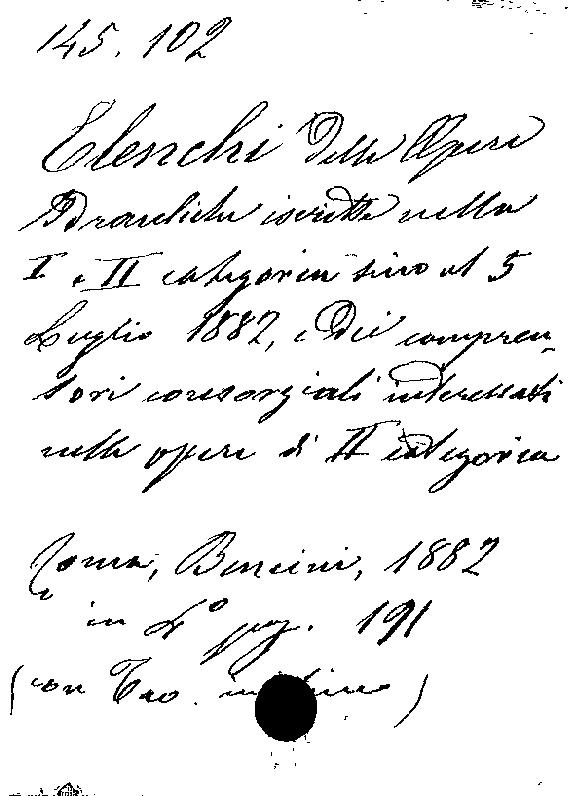 145. 102
Elenchi delle Opere
Idrauliche iscritte nella
I e II categoria sino al 5
Luglio 1882, e dei compren-
sori consorziali interessati
nelle opere di II categoria
Roma, Bencini, 1882
in 4° pag. 191
(con Tav. in fine)